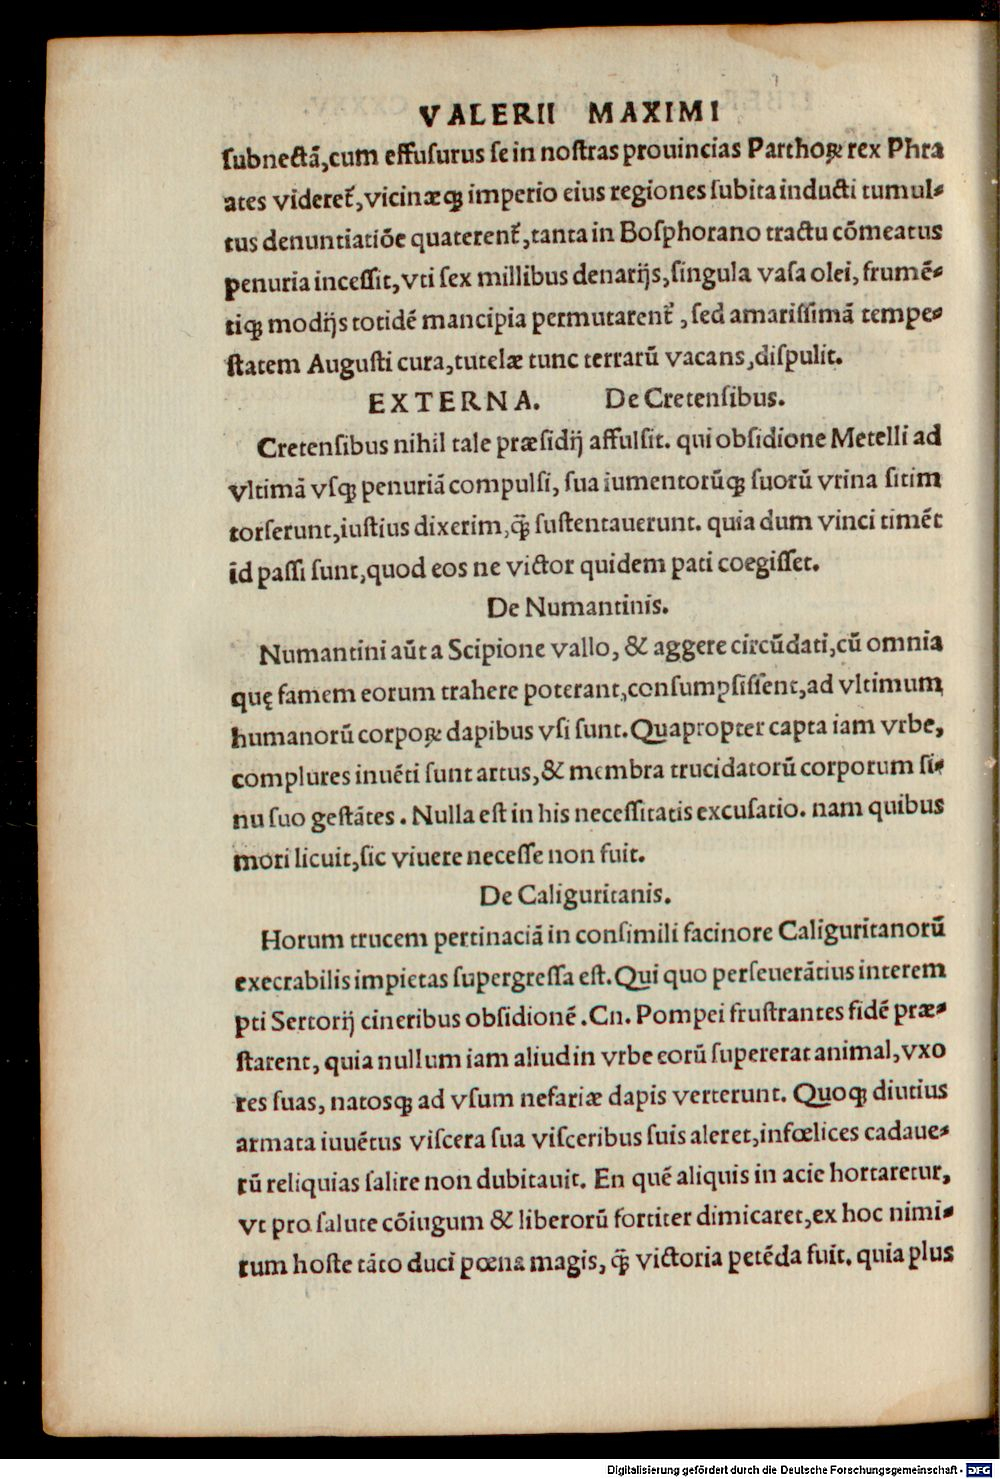 VALERII MAXIMI
ſubnectã,cum effuſurus ſe in noſtras prouincias Parthoꝝ rex Phra
ates videret᷑,vicinæq; imperio eius regiones ſubita inducti tumul-
tus denuntiatiõe quaterent᷑,tanta in Boſphorano tractu cõmeatus
penuria inceſſit,vti ſex millibus denarijs,ſingula vaſa olei, frumẽ-
tiq; modijs totidẽ mancipia permutarent᷑ , ſed amariſſimã tempe-
ſtatem Auguſti cura,tutelæ tunc terrarũ vacans,diſpulit.
EXTERNA. De Cretenſibus.
Cretenſibus nihil tale præſidij affulſit. qui obſidione Metelli ad
vltimã vſq; penuriã compulſi, ſua iumentorũq; ſuorũ vrina ſitim
torſerunt,iuſtius dixerim,q̃ ſuſtentauerunt. quia dum vinci timẽt
id paſſi ſunt,quod eos ne victor quidem pati coegiſſet.
De Numantinis.
Numantini aũt a Scipione vallo, & aggere circũdati,cũ omnia
quę famem eorum trahere poterant,conſumpſiſſent,ad vltimum
humanorũ corpoꝝ dapibus vſi ſunt. Quapropter capta iam vrbe,
complures inuẽti ſunt artus,& membra trucidatorũ corporum ſi-
nu ſuo geſtãtes . Nulla eſt in his neceſſitatis excuſatio. nam quibus
mori licuit,ſic viuere neceſſe non fuit.
De Caliguritanis.
Horum trucem pertinaciã in conſimili facinore Caliguritanorũ
execrabilis impietas ſupergreſſa eſt. Qui quo perſeuerãtius interem
pti Sertorij cineribus obſidionẽ .Cn. Pompei fruſtrantes fidẽ præ-
ſtarent, quia nullum iam aliud in vrbe eorũ ſupererat animal,vxo
res ſuas, natosq; ad vſum nefariæ dapis verterunt. Quoq; diutius
armata iuuẽtus viſcera ſua viſceribus ſuis aleret,infœlices cadaue-
rũ reliquias ſalire non dubitauit. En quẽ aliquis in acie hortaretur,
vt pro ſalute cõiugum & liberorũ fortiter dimicaret,ex hoc nimi-
rum hoſte tãto duci pœna magis, q̃ victoria petẽda fuit. quia plus
Digitalisierung gefördert durch die Deutsche Forschungsgemeinschaft - DFG